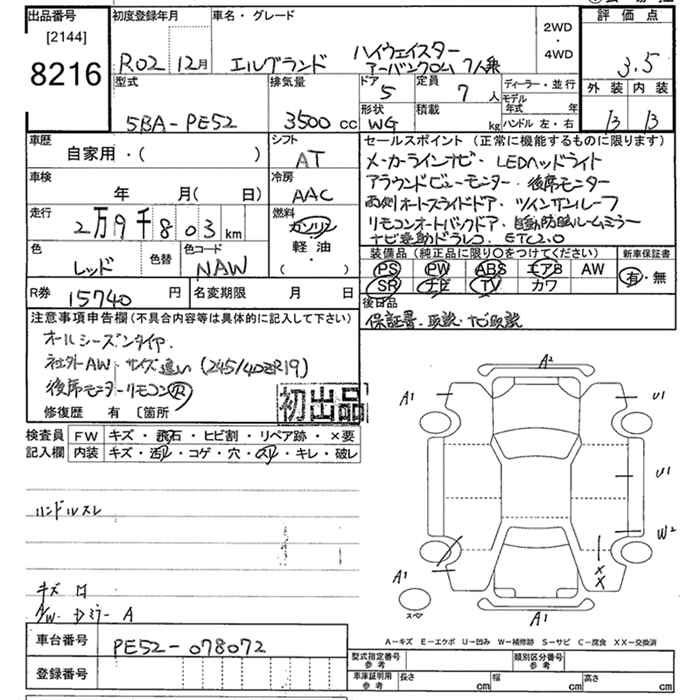 出品番号 初度登録年月 車名・グレード 2WD 評価点
[2144] ・
8216 R02 12月 エルグランド ハイウェイスター 4WD 3.5
アーバンクロム 7人乗
型式 排気量 ドア 定員 ディーラー・並行 外装 内装
5BA-PE52 3500 cc 5 7 人 モデル年式 年
形状 積載 ハンドル 左・右 B B
WG kg
車歴 シフト セールスポイント (正常に機能するものに限ります)
自家用・( ) AT メーカーラインナビ・LEDヘッドライト
車検 冷房 アラウンドビューモニター・後席モニター
年 月( 日) AAC 両側オートスライドドア・ツインサンルーフ
走行 燃料 リモコンオートバックドア・自動防眩ルームミラー
2万9千803 km ガソリン ナビ連動ドラレコ・ETC2.0
色 色替 色コード 軽油・ 装備品(純正品に限り○をつけてください) 新車保証書
レッド NAW ( ) PS PW ABS エアB AW 有・無
R券 15740 円 名変期限 月 日 SR ナビ TV カワ
注意事項申告欄(不具合内容等は具体的に記入して下さい) 後日品
オールシーズンタイヤ・ 保証書・取説・ナビ取説
社外AW・サイズ違い(245/40ZR19)
後席モニターリモコンR
修復歴 有 〔箇所 初出品
検査員 FW キズ・飛石・ヒビ割・リペア跡・×要
記入欄 内装 キズ・汚レ・コゲ・穴・スレ・キレ・破レ
A2
A1 U1
U1
W2
ハンドルスレ
××
A1
スペア
A1
キズ 凹
A/W・Dミラー A
A-キズ E-エクボ U-凹み W-補修跡 S-サビ C-腐食 XX-交換済
車台番号 PE52-078072
型式指定番号 参考 類別区分番号 参考
登録番号 車庫証明用 参考 長さ cm 幅 cm 高さ cm